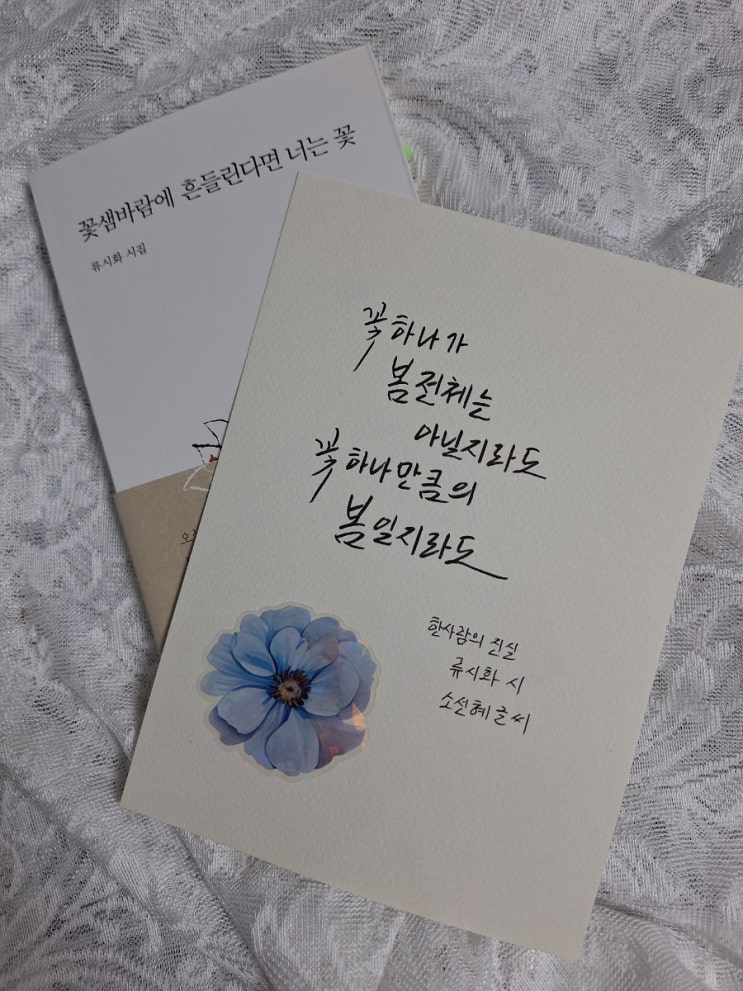 꽃샘바람에 흔들린다면 너는 꽃
류시화 시집
꽃하나가
봄전체는
아닐지라도
꽃하나만큼의
봄일지라도
한사람의 진실
류시화 시
소선혜글씨